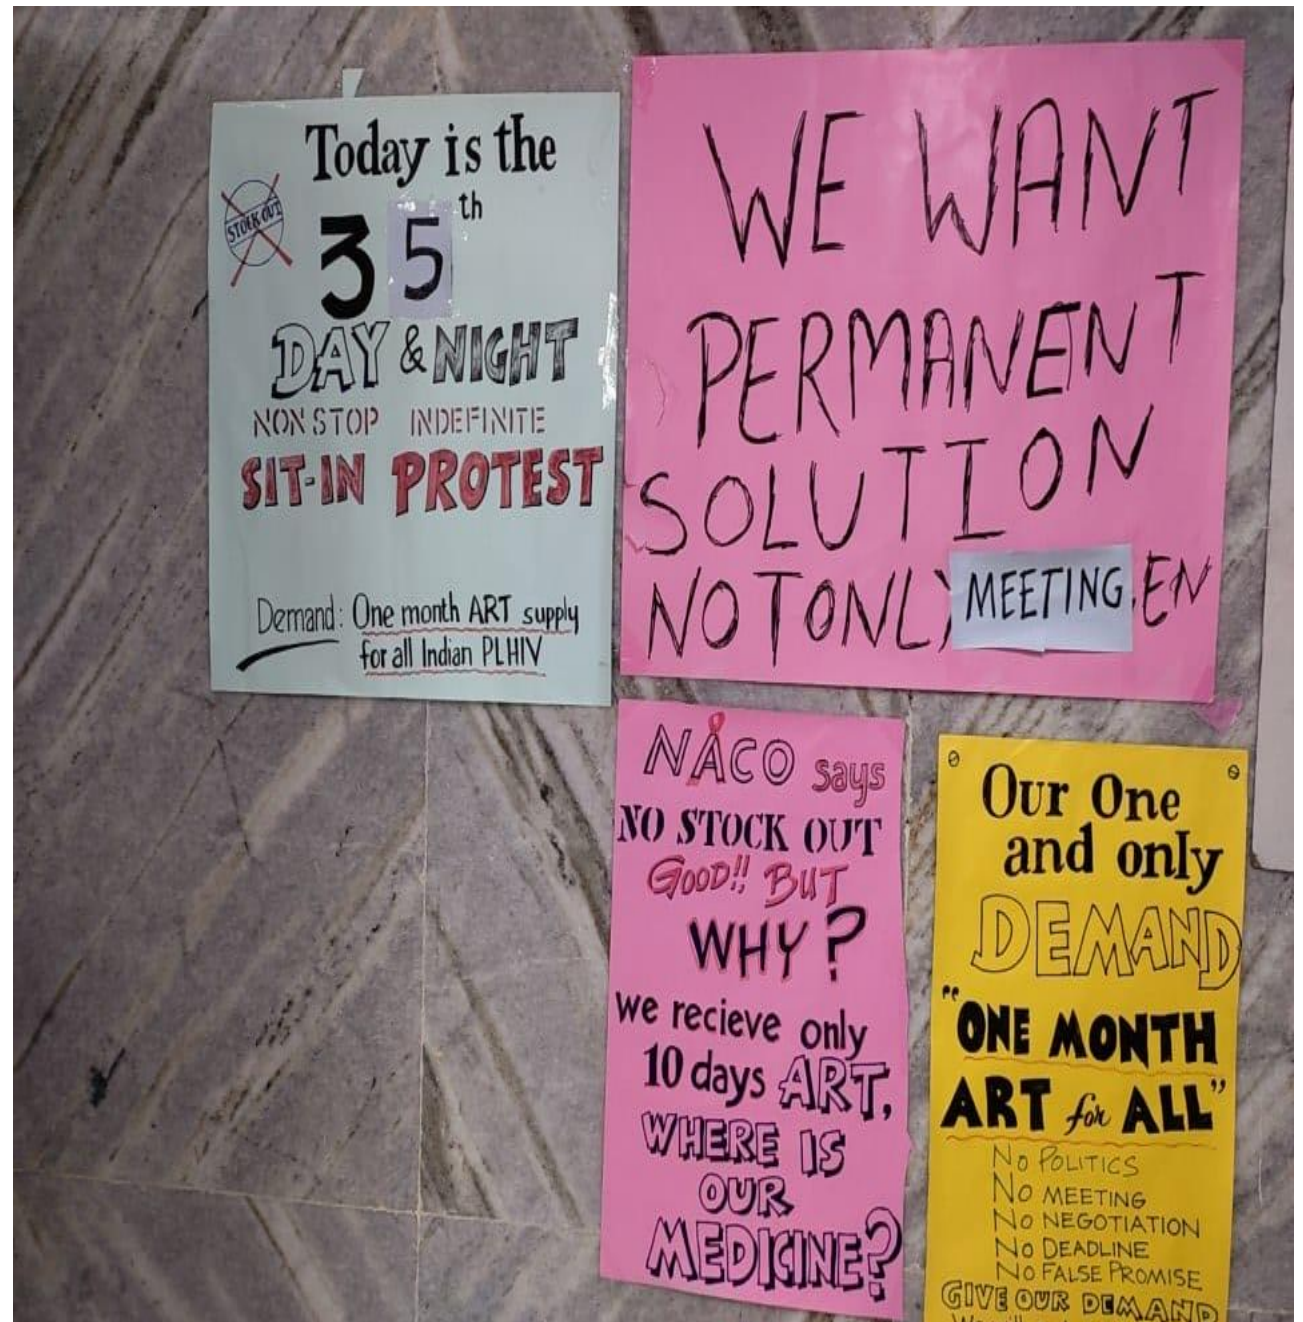 Today is the
STOCK OUT
35th
DAY & NIGHT
NON STOP INDEFINITE
SIT-IN PROTEST
Demand: One month ART supply
for all Indian PLHIV
WE WANT
PERMANENT
SOLUTION
NOT ONLY MEETING EN
NACO says
NO STOCK OUT
GOOD!! BUT
WHY?
we recieve only
10 days ART,
WHERE IS
OUR
MEDICINE?
Our One
and only
DEMAND
"ONE MONTH
ART for ALL"
NO POLITICS
NO MEETING
NO NEGOTIATION
NO DEADLINE
NO FALSE PROMISE
GIVE OUR DEMAND